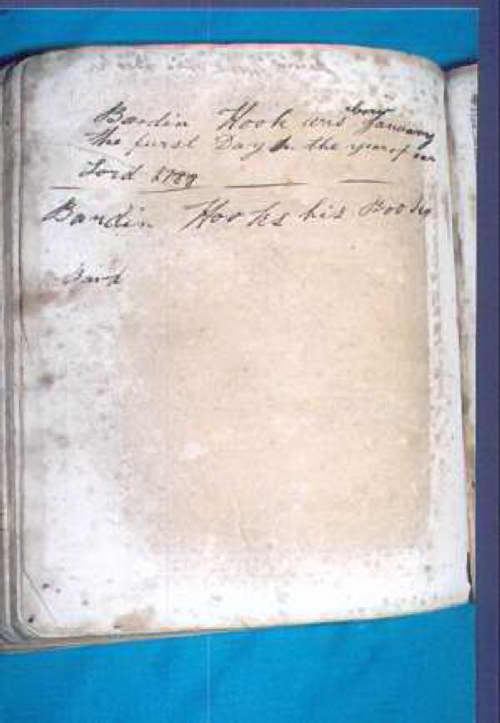 born
Bardin Hook was January
the first Day in the year of our
Lord 1789
Bardin Hooks his Book